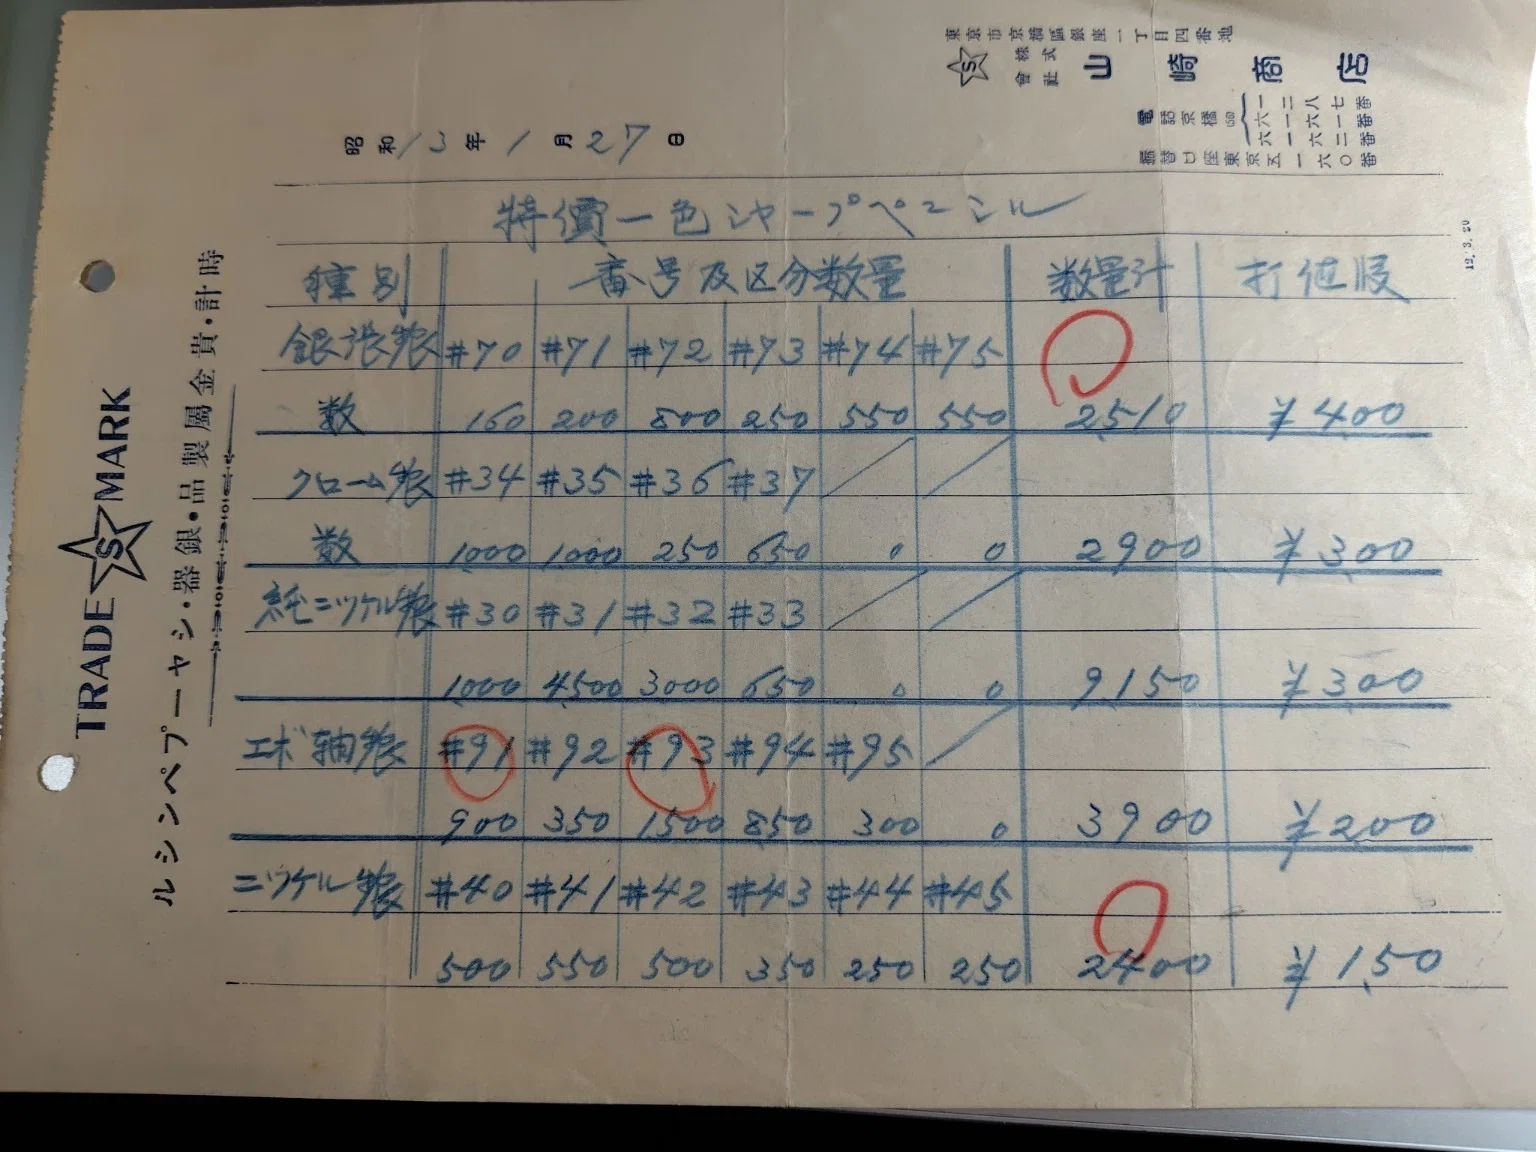 東京市京橋區銀座一丁目四番地
株式會社 山崎商店
電話京橋(56)
六六一八番
六一二六番
一六六七番
振替口座東京五一六〇番
昭和13年1月27日
特價一色シャープペンシル
種別 番号及区分数量 数量計 打値段
銀張製 #70 #71 #72 #73 #74 #75
数 160 200 800 250 550 550 2510 ¥4.00
クローム製 #34 #35 #36 #37
数 1000 1000 250 650 0 0 2900 ¥3.00
純ニッケル製 #30 #31 #32 #33
1000 4500 3000 650 0 0 9150 ¥3.00
エボ軸製 #91 #92 #93 #94 #95
900 350 1500 850 300 0 3900 ¥2.00
ニッケル製 #40 #41 #42 #43 #44 #45
500 550 500 350 250 250 2400 ¥1.50
TRADE S MARK
時計・貴金屬製品・銀器・シャープペンシル
12.3.20